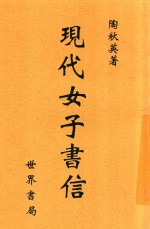 陶秋英著
現代女子書信
世界書局